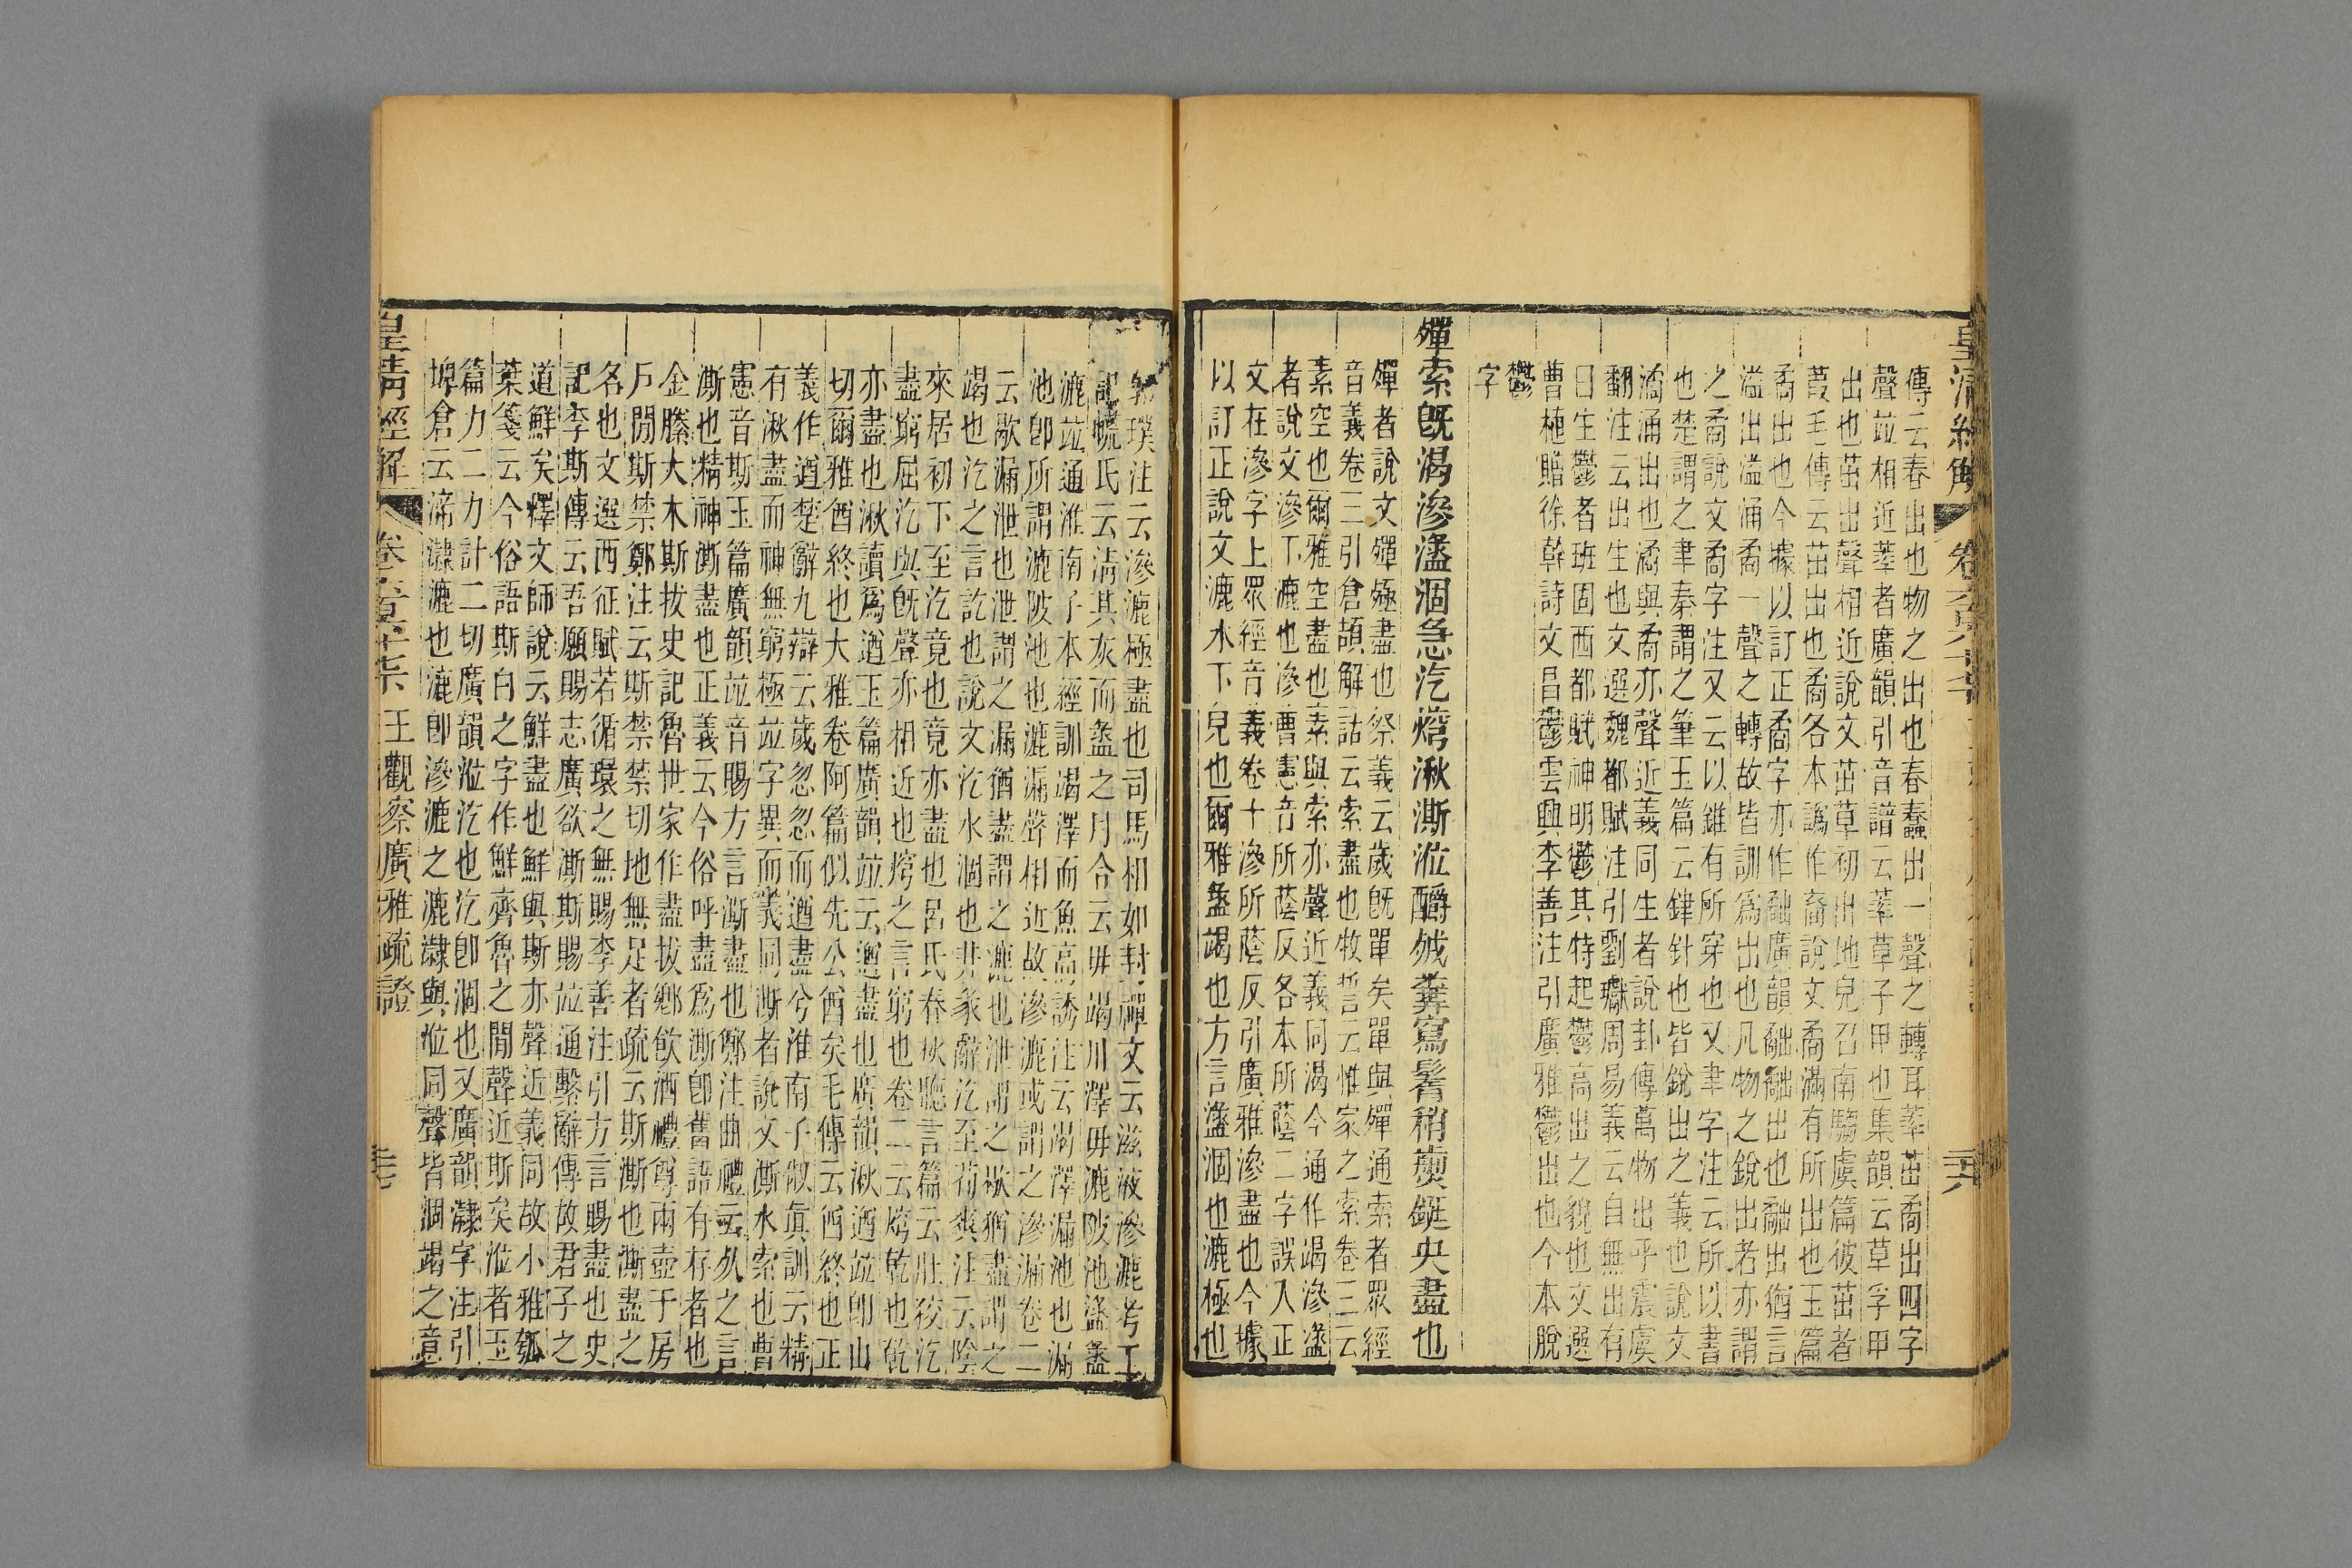 傳云春出也物之出也春蠢出一聲之轉耳莘茁矞出四字
聲竝相近莘者廣韻引音譜云莘草子甲也集韻云草孚甲
出也茁出聲相近說文茁草初出地皃召南騶虞篇彼茁者
葭毛傳云茁出也矞各本譌作裔說文矞滿有所出也玉篇
矞出也今據以訂正矞字亦作䂐廣韻出也出猶言
溢出溢涌矞一聲之轉故皆訓爲出也凡物之銳出者亦謂
之矞說文矞字注又云以錐有所穿也又聿字注云所以書
也楚謂之聿秦謂之筆玉篇云銉針也皆銳出之義也說文
潏涌出也潏與矞亦聲近義同生者說卦傳萬物出乎震虞
翻注云出生也文選魏都賦注引劉瓛周易義云自無出有
曰生鬱者班固西都賦神明鬱其特起鬱高出之貌也文選
曹植贈徐幹詩文昌鬱雲興李善注引廣雅鬱出也今本脫
鬱
字
殫索旣渴滲盪涸急汔㷀湫澌泣釂㳚䔿寫鬌稍䕎鋌央盡也
殫者說文殫殛盡也祭義云歲旣單矣單與殫通索者眾經
音義卷三引倉頡解詁云索盡也牧誓云惟家之索卷三云
素空也爾雅空盡也素與索亦聲近義同渴今通作竭滲盪
者說文滲下漉也滲曹憲音所蔭反各本所蔭二字誤入正
文在滲字上眾經音義卷十滲所蔭反引廣雅滲盡也今據
以訂正說文漉水下皃也爾雅盝竭也方言盪涸也漉極也
郭璞注云滲漉極盡也司馬相如封禪文云滋液滲漉考工
記㡛氏云淸其灰而盝之月令云毋竭川澤毋漉陂池盪盝
漉竝通淮南子本經訓竭澤而魚高誘注云竭澤漏池也漏
池卽所謂漉陂池也漉漏聲相近故滲漉或謂之滲漏卷二
云歇漏泄也泄謂之漏猶盡謂之漉也泄謂之歇猶盡謂之
竭也汔之言訖也說文汔水涸也井彖辭汔至荀爽注云陰
來居初下至汔竟也竟亦盡也呂氏春秋聽言篇云壯狡汔
盡窮屈汔與旣聲亦相近也㷀之言窮也卷二云㷀乾也乾
亦盡也湫讀爲遒玉篇廣韻竝云遒盡也廣韻湫遒竝卽山
切爾雅酋終也大雅卷阿篇似先公酋矣毛傳云酋終也正
義作遒楚辭九辯云歲忽忽而遒盡兮淮南子俶眞訓云精
有湫盡而神無窮極竝字異而義同澌者說文澌水索也曹
憲音斯玉篇廣韻竝音賜方言澌盡也鄭注曲禮云死之言
澌也精神澌盡也正義云今俗呼盡爲澌卽舊語有存者也
金縢大木斯拔史記魯世家作盡拔鄉飲酒禮尊兩壺于房
戶閒斯禁鄭注云斯禁禁切地無足者疏云斯澌也澌盡之
名也文選西征賦若循環之無賜李善注引方言賜盡也史
記李斯傳云吾願賜志廣欲澌斯賜竝通繫辭傳故君子之
道鮮矣釋文師說云鮮盡也鮮與斯亦聲近義同故小雅瓠
葉箋云今俗語斯白之字作鮮齊魯之閒聲近斯矣泣者玉
篇力二力計二切廣韻泣汔也汔卽涸也又廣韻㴃字注引
埤倉云渧㴃漉也漉卽滲漉之漉㴃與泣同聲皆涸竭之意
皇淸經解 王觀察廣雅疏證